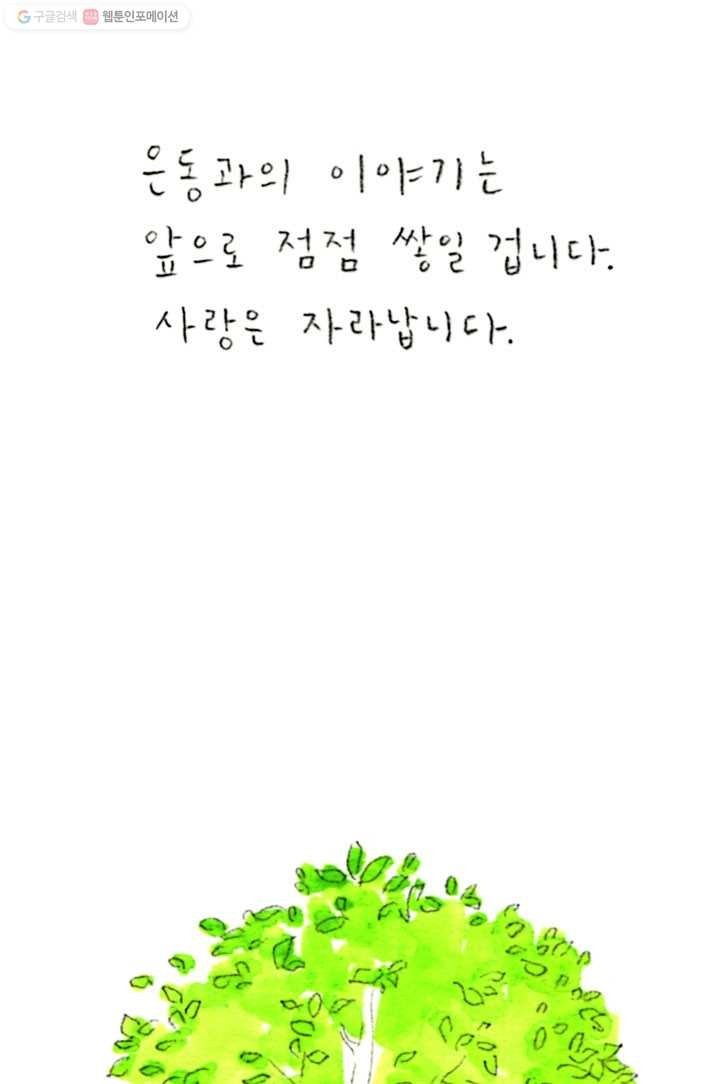 구글검색 웹툰인포메이션
은동과의 이야기는
앞으로 점점 쌓일 겁니다.
사랑은 자라납니다.